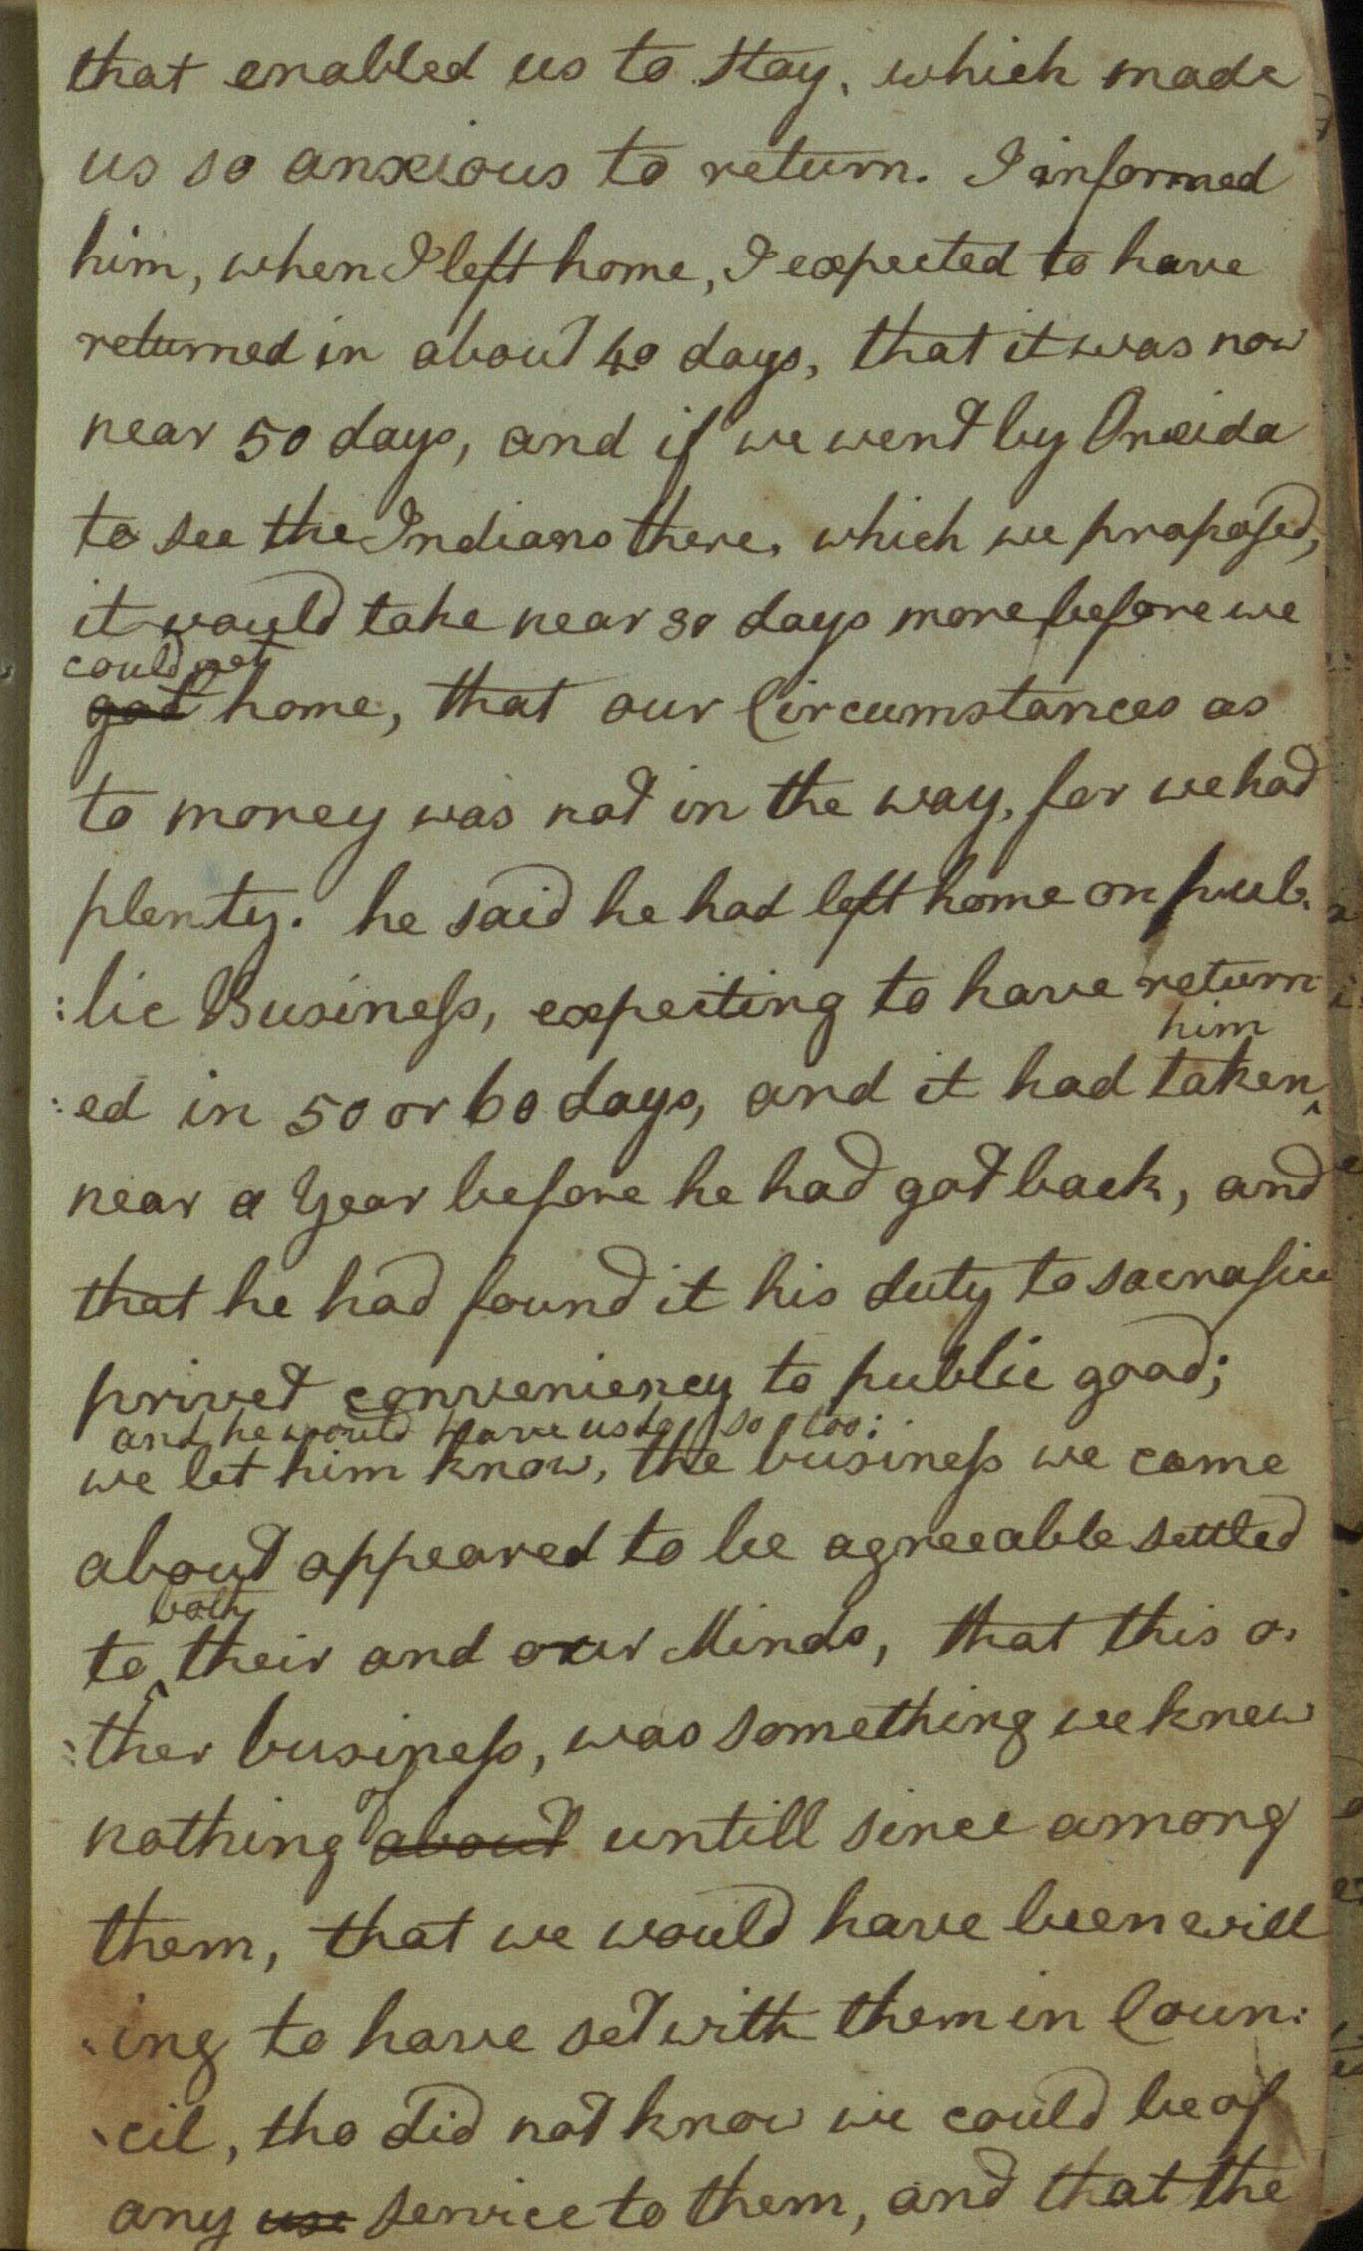 that enabled us to stay, which made
us so anxious to return. I informed
him, when I left home, I expected to have
returned in about 40 days, that it was now
near 50 days, and if we went by Oneida
to see the Indians there, which we proposed,
it would take near 30 days more before we
could get
got home, that our Circumstances as
to money was not in the way, for we had
plenty. he said he had left home on pub.
:lic Business, expecting to have return
him
:ed in 50 or 60 days, and it had taken‸
near a Year before he had got back, and
that he had found it his duty to sacrafice
privet conveniency to public good;
and he would have us do so too:
we let him know, the business we came
about appeared to be agreeable settled
both
to‸their and our Minds, that this o.
:ther business, was something we knew
of
nothing about untill since among
them, that we would have been will
:ing to have set with them in Coun:
:cil, tho did not know we could be of
any use service to them, and that the